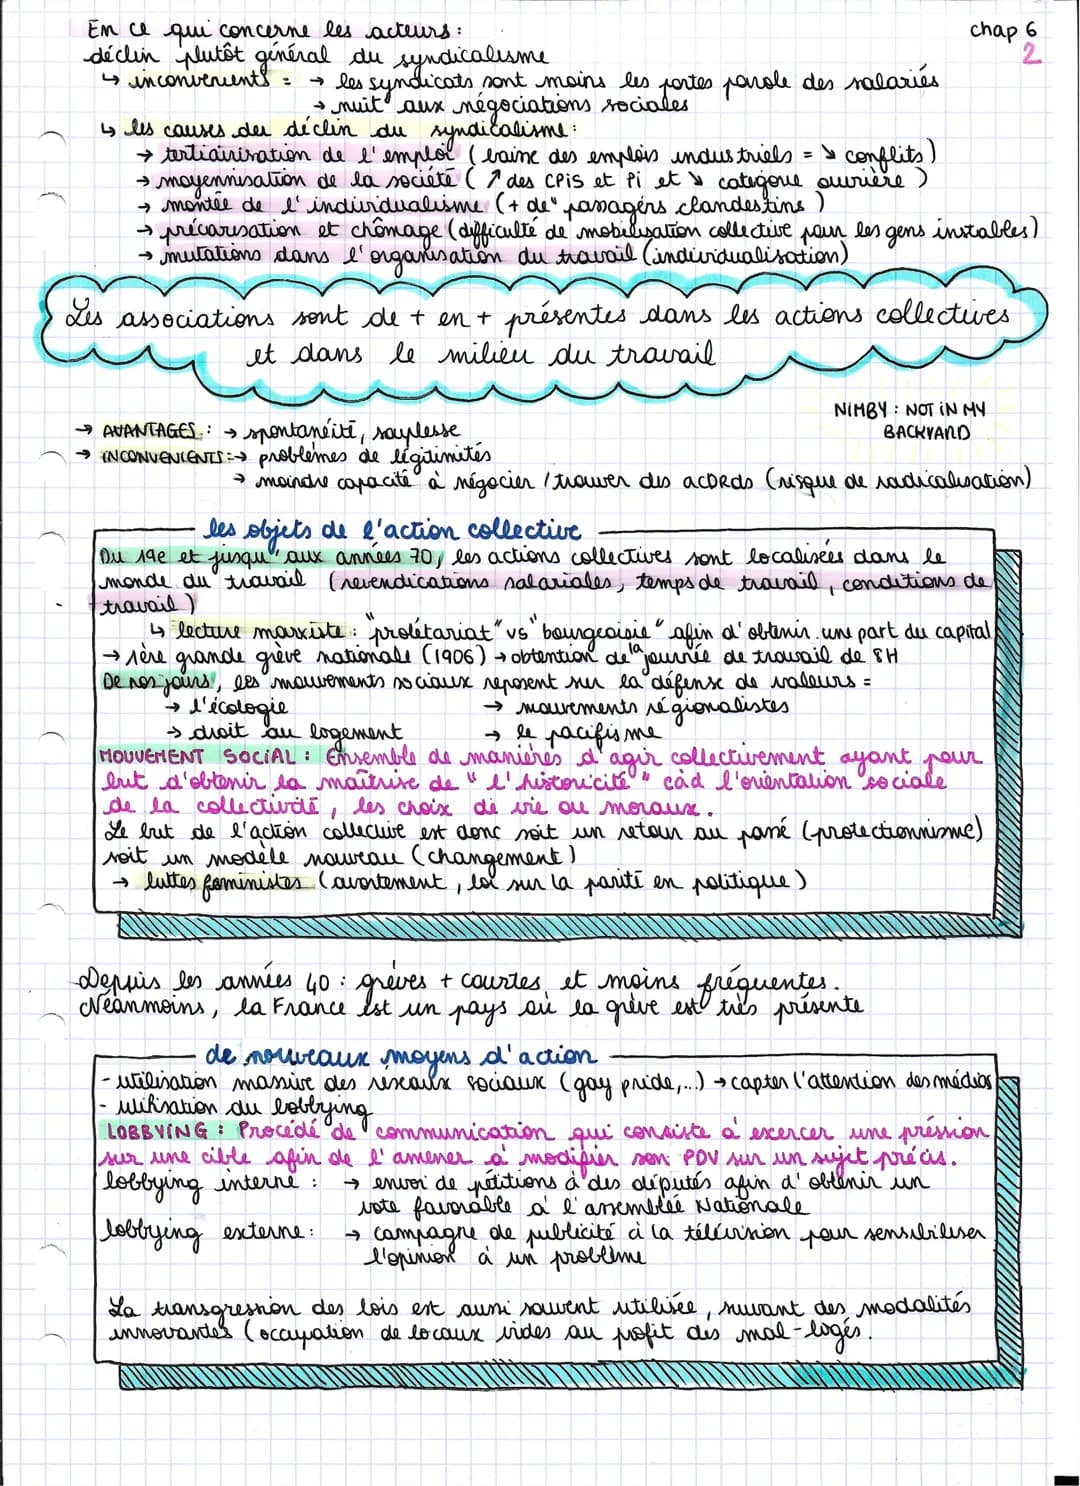 chap 6
2
En ce qui concerne les acteurs :
déclin plutôt général du syndicalisme
↳ inconvenients = → les syndicats sont moins les portes parole des salariés
→ nuit aux négociations sociales
↳ les causes du déclin du syndicalisme :
→ tertiairisation de l'emploi (baisse des emplois industriels = ↘ conflits)
→ moyennisation de la société (↗ des CPiS et Pi et ↘ categorie ouvrière)
→ montée de l'individualisme (+ de "passagers clandestins)
→ précarisation et chômage (difficulté de mobilisation collective pour les gens instables)
→ mutations dans l'organisation du travail (individualisation)
Les associations sont de + en + présentes dans les actions collectives
et dans le milieu du travail
NiMBY : NOT iN MY
BACKYARD
→ AVANTAGES : → spontanéité, souplesse
→ iNCONVENiENTS : → problèmes de légitimités
→ moindre capacité à négocier / trouver des accords (risque de radicalisation)
les objets de l'action collective
Du 19e et jusqu'aux années 70, les actions collectives sont localisées dans le
monde du travail (revendications salariales, temps de travail, conditions de
travail)
↳ lecture marxiste : "prolétariat" vs "bourgeoisie" afin d'obtenir une part du capital
→ 1ère grande grève nationale (1906) → obtention de la journée de travail de 8H
De nos jours, les mouvements sociaux reposent sur la défense de valeurs =
→ l'écologie → mouvements régionalistes
→ droit au logement → le pacifisme
MOUVEMENT SOCiAL : Ensemble de manières d'agir collectivement ayant pour
but d'obtenir la maîtrise de "l'historicité" càd l'orientation sociale
de la collectivité, les choix de vie ou moraux.
Le but de l'action collective est donc soit un retour au passé (protectionnisme)
soit un modèle nouveau (changement)
→ luttes féministes (avortement, loi sur la parité en politique)
Depuis les années 40 : grèves + courtes et moins fréquentes.
Néanmoins, la France est un pays où la grève est très présente
de nouveaux moyens d'action
- utilisation massive des réseaux sociaux (gay pride,...) → capter l'attention des médias
- utilisation du lobbying
LOBBYiNG : Procédé de communication qui consiste à exercer une préssion
sur une cible afin de l'amener à modifier son PDV sur un sujet précis.
lobbying interne : → envoi de pétitions à des députés afin d'obtenir un
vote favorable à l'assemblée Nationale
lobbying externe : → campagne de publicité à la télévision pour sensibiliser
l'opinion à un problème
La transgression des lois est aussi souvent utilisée, suivant des modalités
innovantes (occupation de locaux vides au profit des mal-logés.